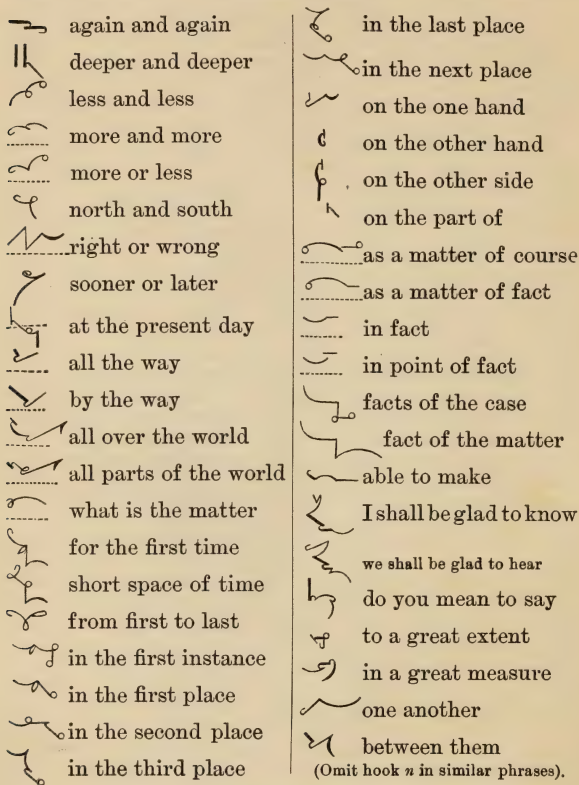 again and again
deeper and deeper
less and less
more and more
more or less
north and south
right or wrong
sooner or later
at the present day
all the way
by the way
all over the world
all parts of the world
what is the matter
for the first time
short space of time
from first to last
in the first instance
in the first place
in the second place
in the third place
in the last place
in the next place
on the one hand
on the other hand
on the other side
on the part of
as a matter of course
as a matter of fact
in fact
in point of fact
facts of the case
fact of the matter
able to make
I shall be glad to know
we shall be glad to hear
do you mean to say
to a great extent
in a great measure
one another
between them
(Omit hook n in similar phrases).